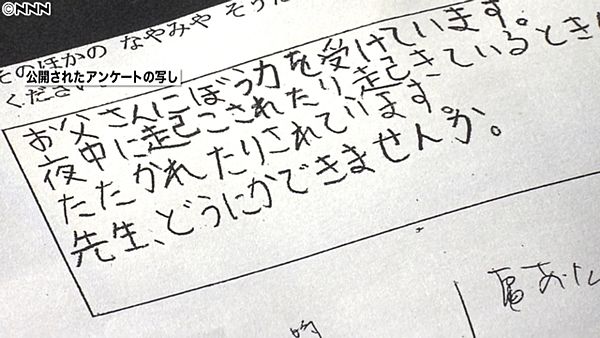 NNN
そのほかの なやみや そうだ
公開されたアンケートの写し
ください
お父さんにぼう力を受けています。
夜中に起こされたり、起きているときに
たたかれたりされています。
先生、どうにかできませんか。